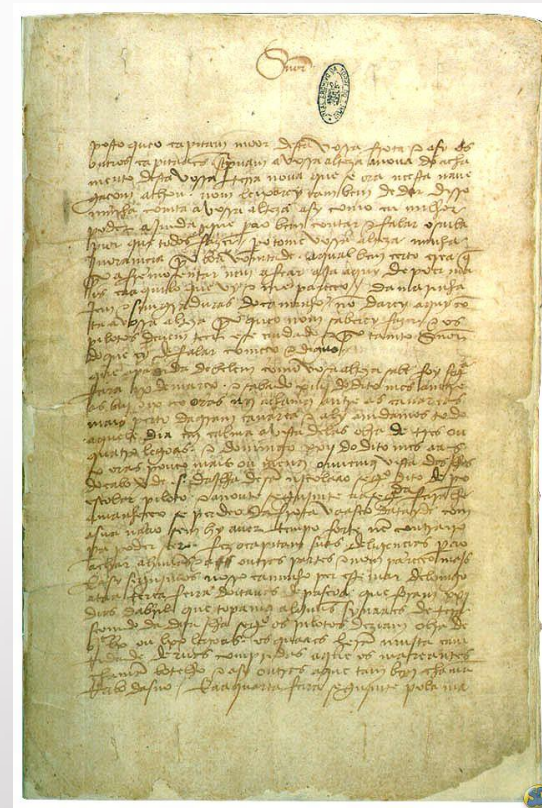 Snor
posto queo capitam moor desta vossa frota e asy os
outros capitaães screpuam a vossa alteza a noua do acha
mento desta vossa terra noua que se ora neesta naue
gaçam achou. nom leixarey tambem de dar disso
minha comta avossa alteza asy como eu milhor
poder ajmda que perao bem contar e falar o saiba
pior que todos fazer / pero tome vossa alteza minha
inoramçia por boa vomtade. aqual bem çerto crea q̃
por afremosentar nem afear aja aquy de poer ma
is caaquilo que vy e me pareçeo / da marinha
jem e simgraduras do caminho / nõ darey aquy cõ
ta a vossa alteza porque o nom saberey fazer e os
pilotos deuem teer ese cuidado e por tanto Snõr
do que ey de falar começo e diguo /
que a partida de belem como vosa alteza sabe foy segª
feira ix de março. e sabado xiiij do dito mes amtre
as biij e ix oras nos achamos amtre as canareas
mais perto da gram canarea e aly amdamos todo
aquele dia em calma avista delas obra de tres ou
quatro legoas. e domingo xxij do dito mes aas
x oras pouco mais ou menos ouuemos vista das jlhas
do cabo verde .s. da jlha de sã njcolaao segº dito de pº
escolar piloto. e anoute segujmte aa segª feira lhe
amanheceo se perdeo da frota vaasco datayde com
asua naao sem hy auer tempo forte nẽ contrairo
pera poder seer. fez o capitam suas deligençias perao
achar ahuũas e a outras partes e nom pareçeo mais
E asy segujmos nosso caminho per este mar de lomgo
ataa terça feira doitauas de pascoa que foram xxj
dias dabril que topamos alguũs synaaes de tera
seemdo da dita jlha segº os pilotos deziam obra de
bjc lx ou lxx legoas. os quaaes herã muita cam
tidade deruas compridas aque os mareantes
chamã botelho e asy outras aque tambem chamã
rrabo dasno / E aa quarta feira segujmte pola ma